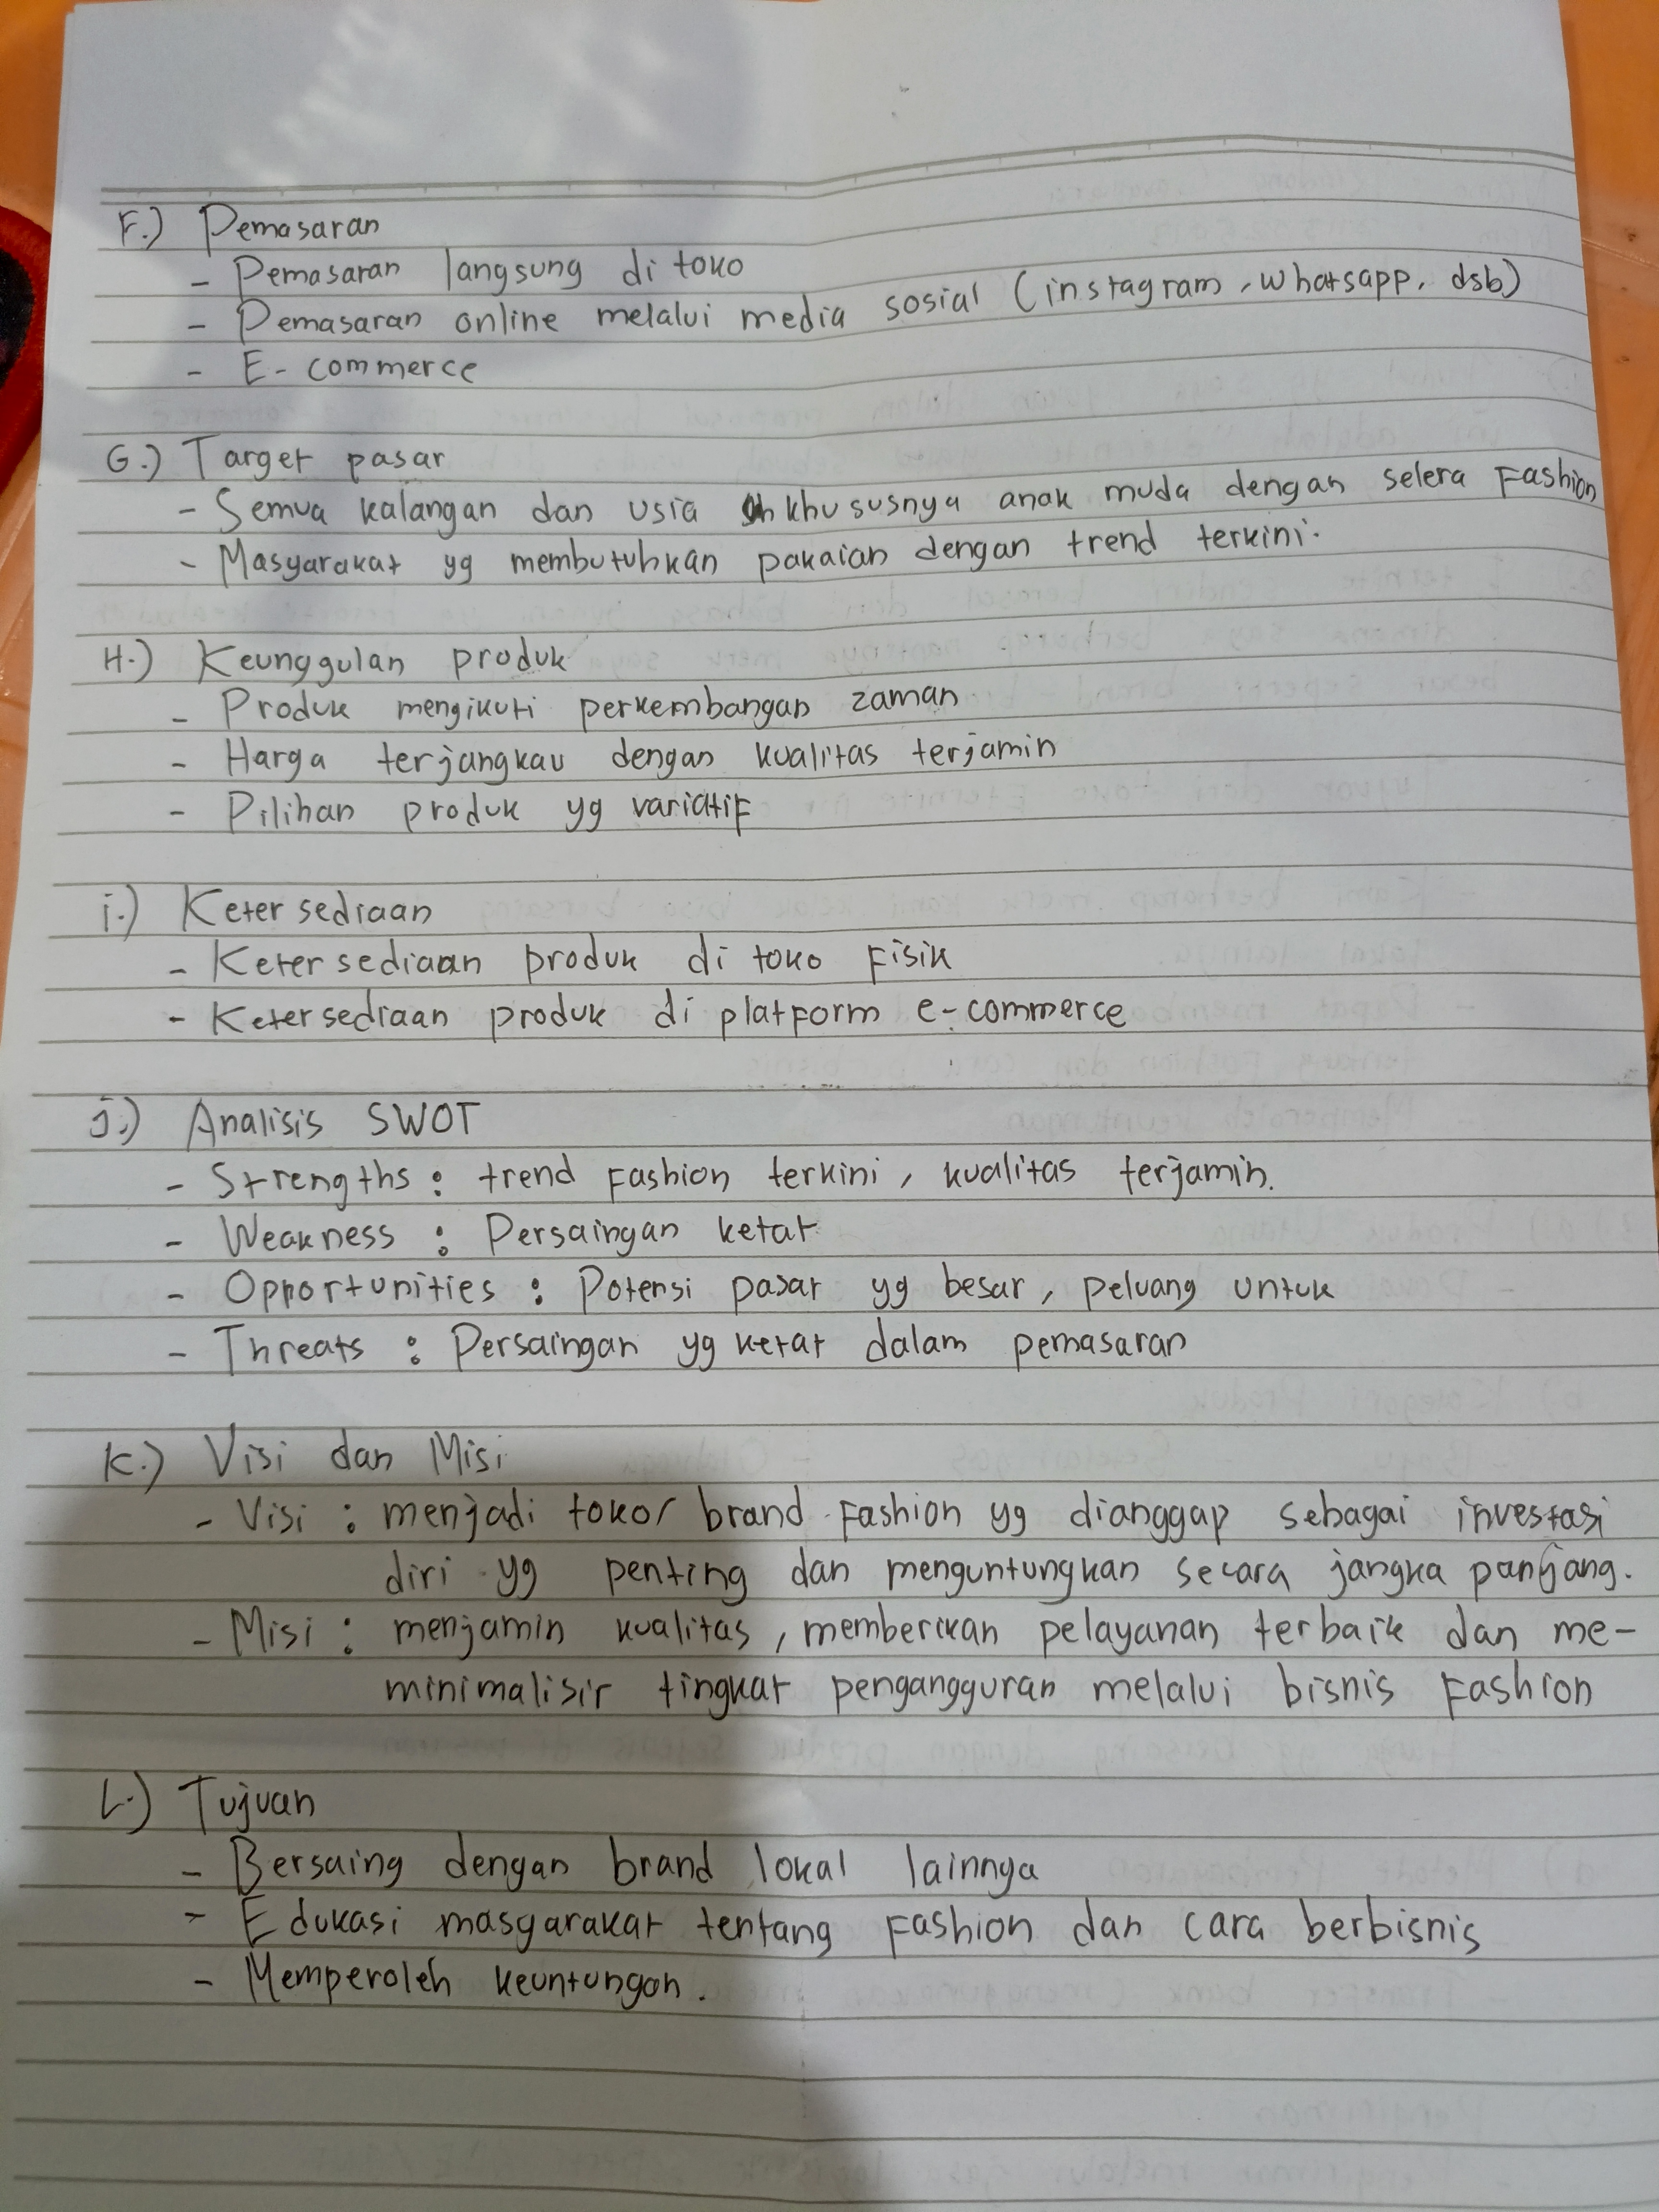 F.) Pemasaran
- Pemasaran langsung di toko
- Pemasaran online melalui media sosial (instagram, whatsapp, dsb)
- E-commerce
G.) Target pasar
- Semua kalangan dan usia khususnya anak muda dengan selera Fashion
- Masyarakat yg membutuhkan pakaian dengan trend terkini.
H.) Keunggulan produk
- Produk mengikuti perkembangan zaman
- Harga terjangkau dengan kualitas terjamin
- Pilihan produk yg variatif
i.) Ketersediaan
- Ketersediaan produk di toko Fisik
- Ketersediaan produk di platform e-commerce
j.) Analisis SWOT
- Strengths : trend Fashion terkini, kualitas terjamin.
- Weakness : Persaingan ketat
- Opportunities : Potensi pasar yg besar, peluang untuk
- Threats : Persaingan yg ketat dalam pemasaran
K.) Visi dan Misi
- Visi : menjadi toko/ brand Fashion yg dianggap sebagai investasi
diri yg penting dan menguntungkan secara jangka panjang.
- Misi : menjamin kualitas, memberikan pelayanan terbaik dan me-
minimalisir tingkat pengangguran melalui bisnis Fashion
L.) Tujuan
- Bersaing dengan brand lokal lainnya
- Edukasi masyarakat tentang Fashion dan cara berbisnis
- Memperoleh keuntungan.